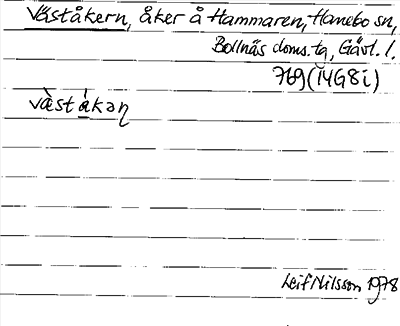 Väståkern, åker å Hammaren, Hanebo sn,
Bollnäs doms.tg, Gävl. l.
769 (14G8i)
vàståkəɳ
Leif Nilsson 1978